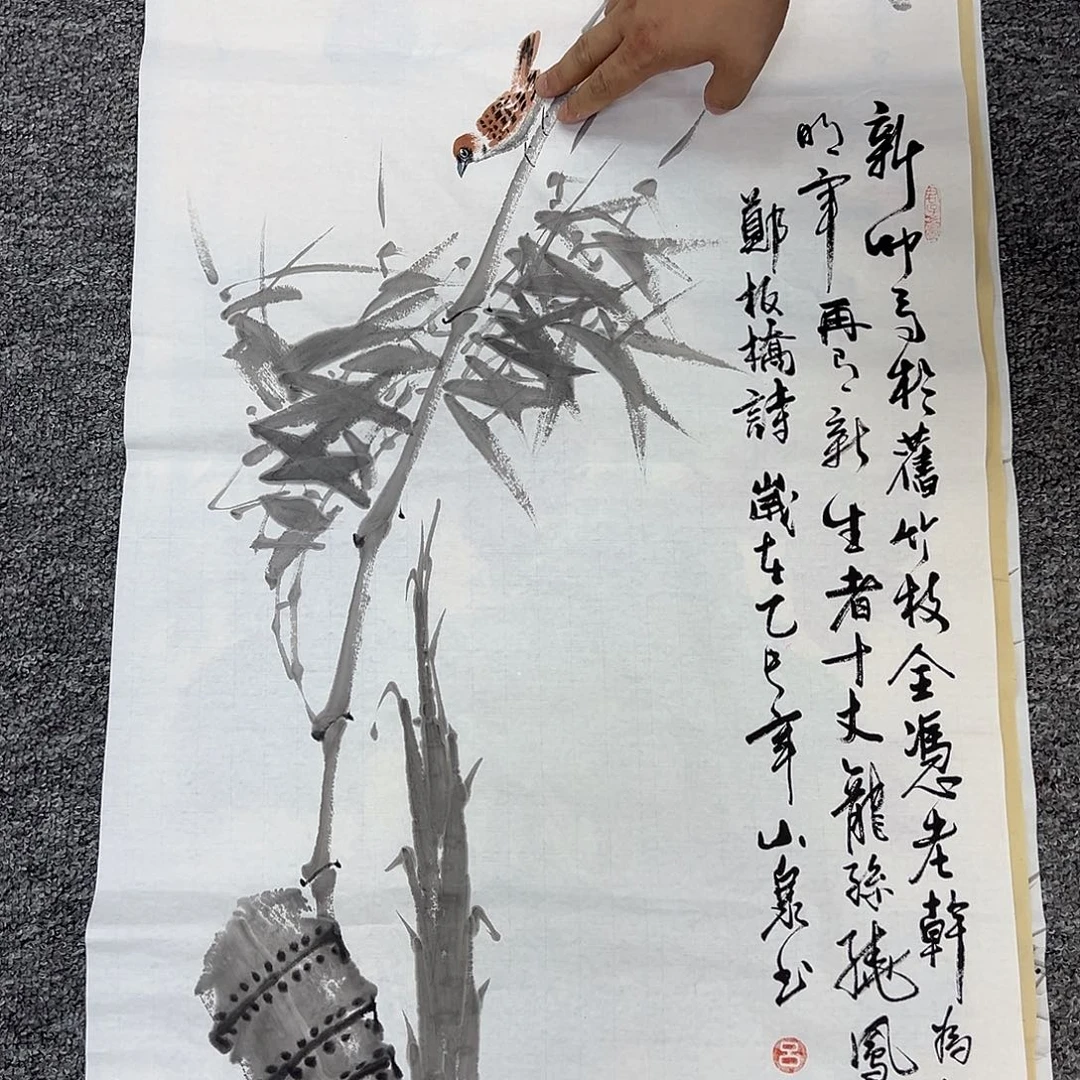 新竹高於舊竹枝全憑老幹為
明年再有新生者十丈龍孫繞鳳
鄭板橋詩 歲在乙巳年 山泉书
呂